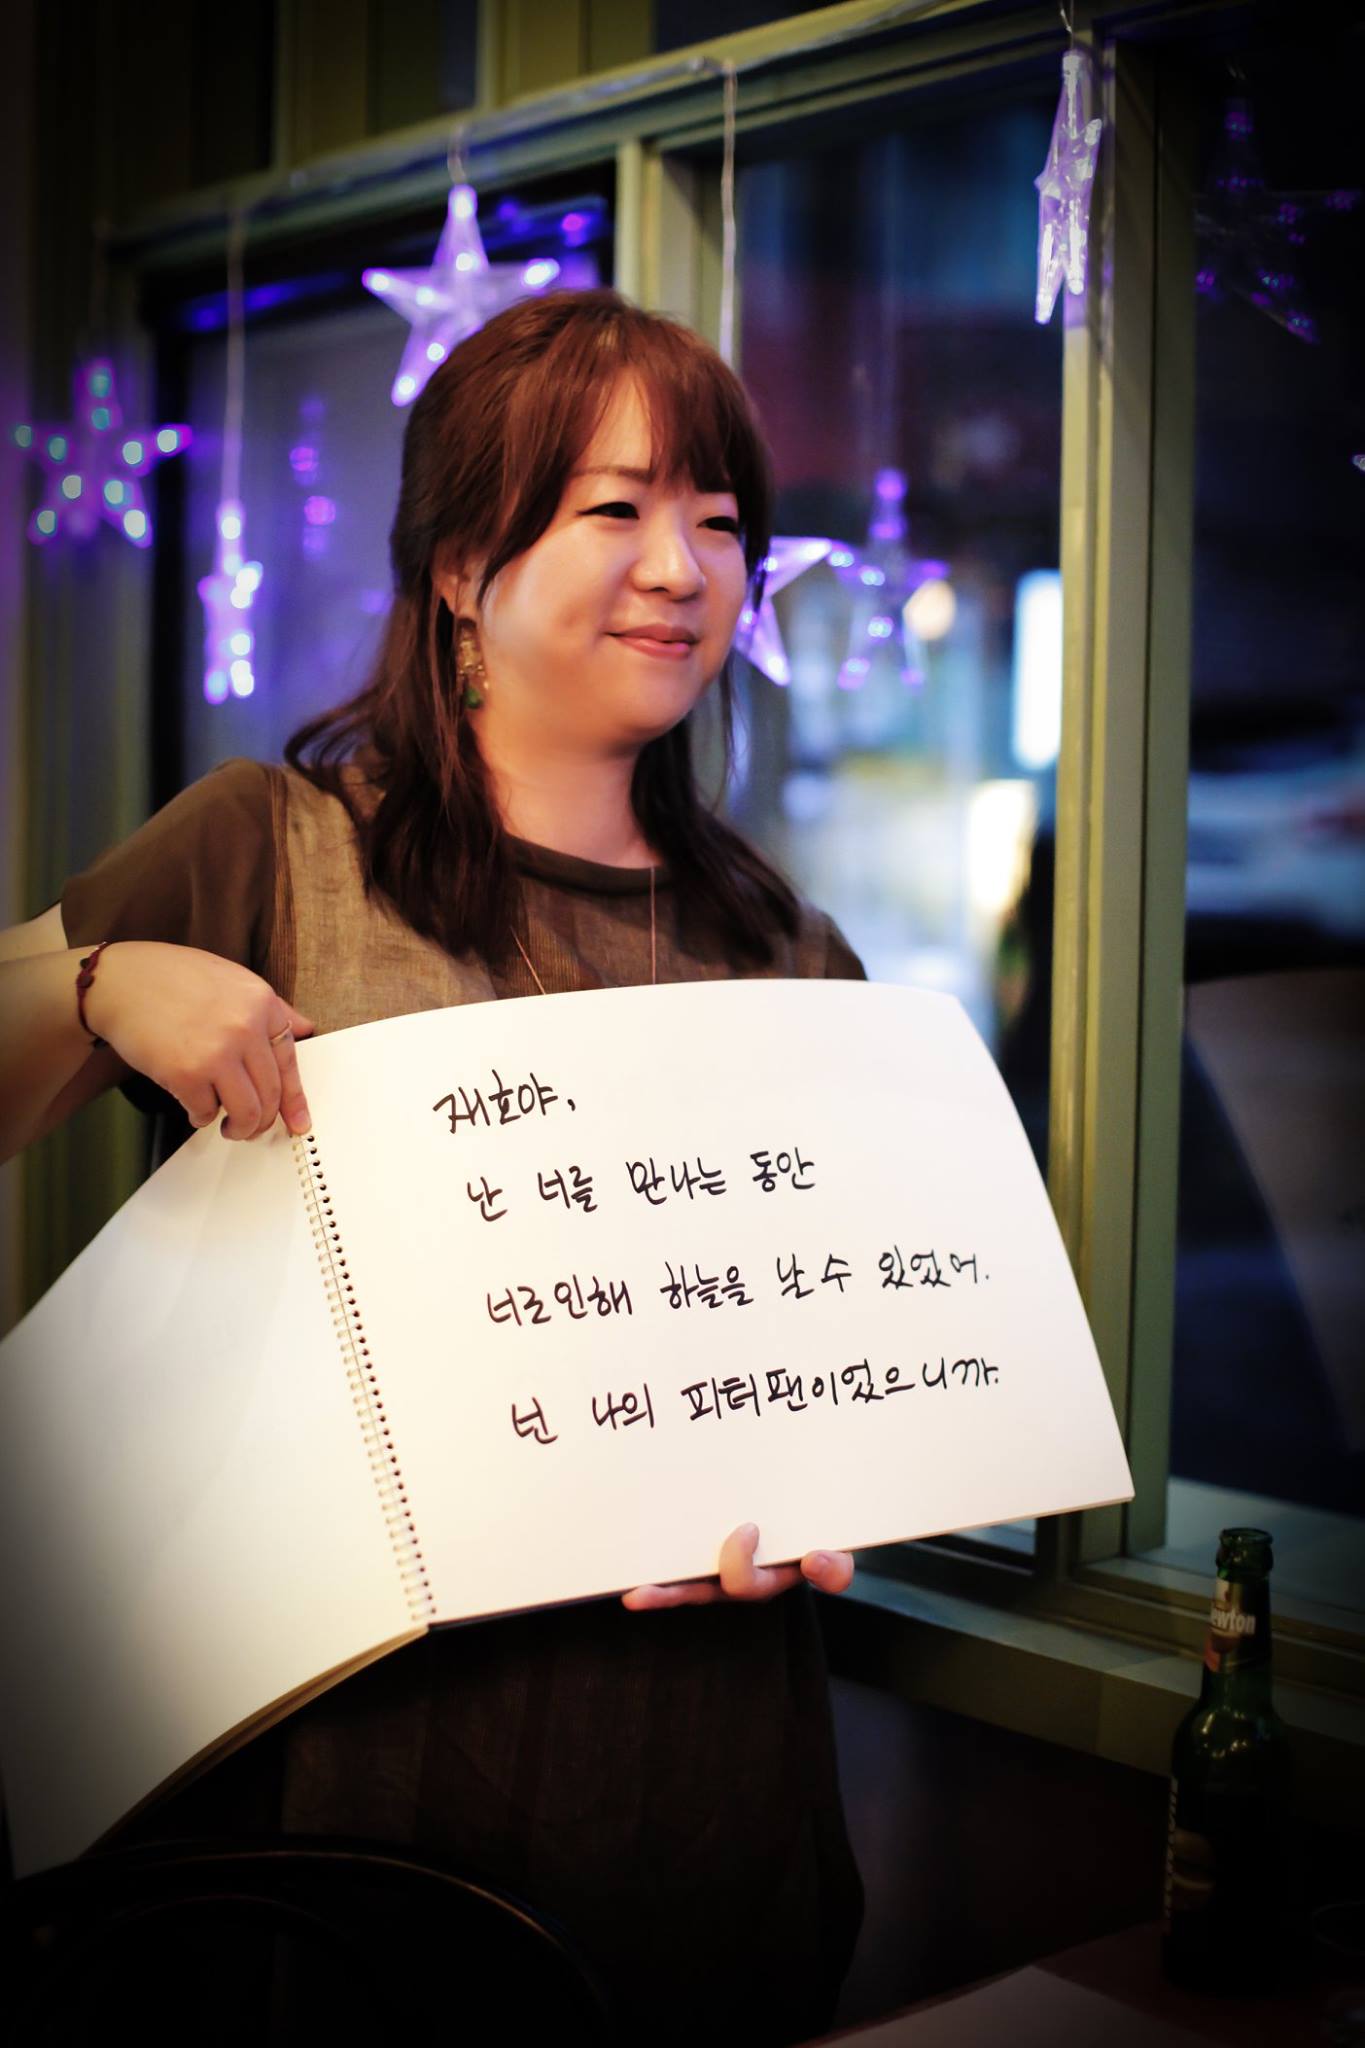 재호야,
난 너를 만나는 동안
너로인해 하늘을 날 수 있었어.
넌 나의 피터팬이었으니까.
ewton